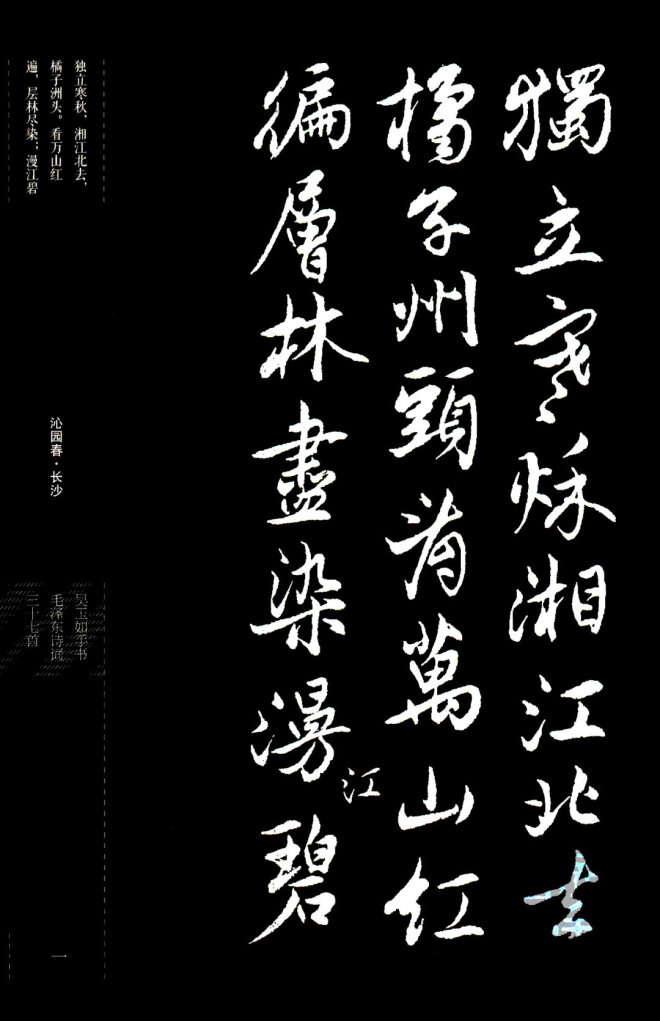 獨立寒秌湘江北去
橘子州頭看萬山紅
徧層林盡染漫江碧
独立寒秋，湘江北去，
橘子洲头。看万山红
遍，层林尽染；漫江碧
沁园春·长沙
吴玉如手书
毛泽东诗词
三十七首
一